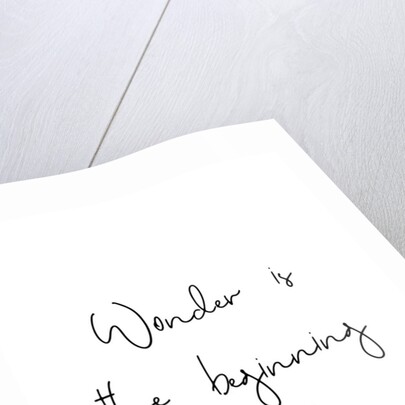 Wonder is
the beginning